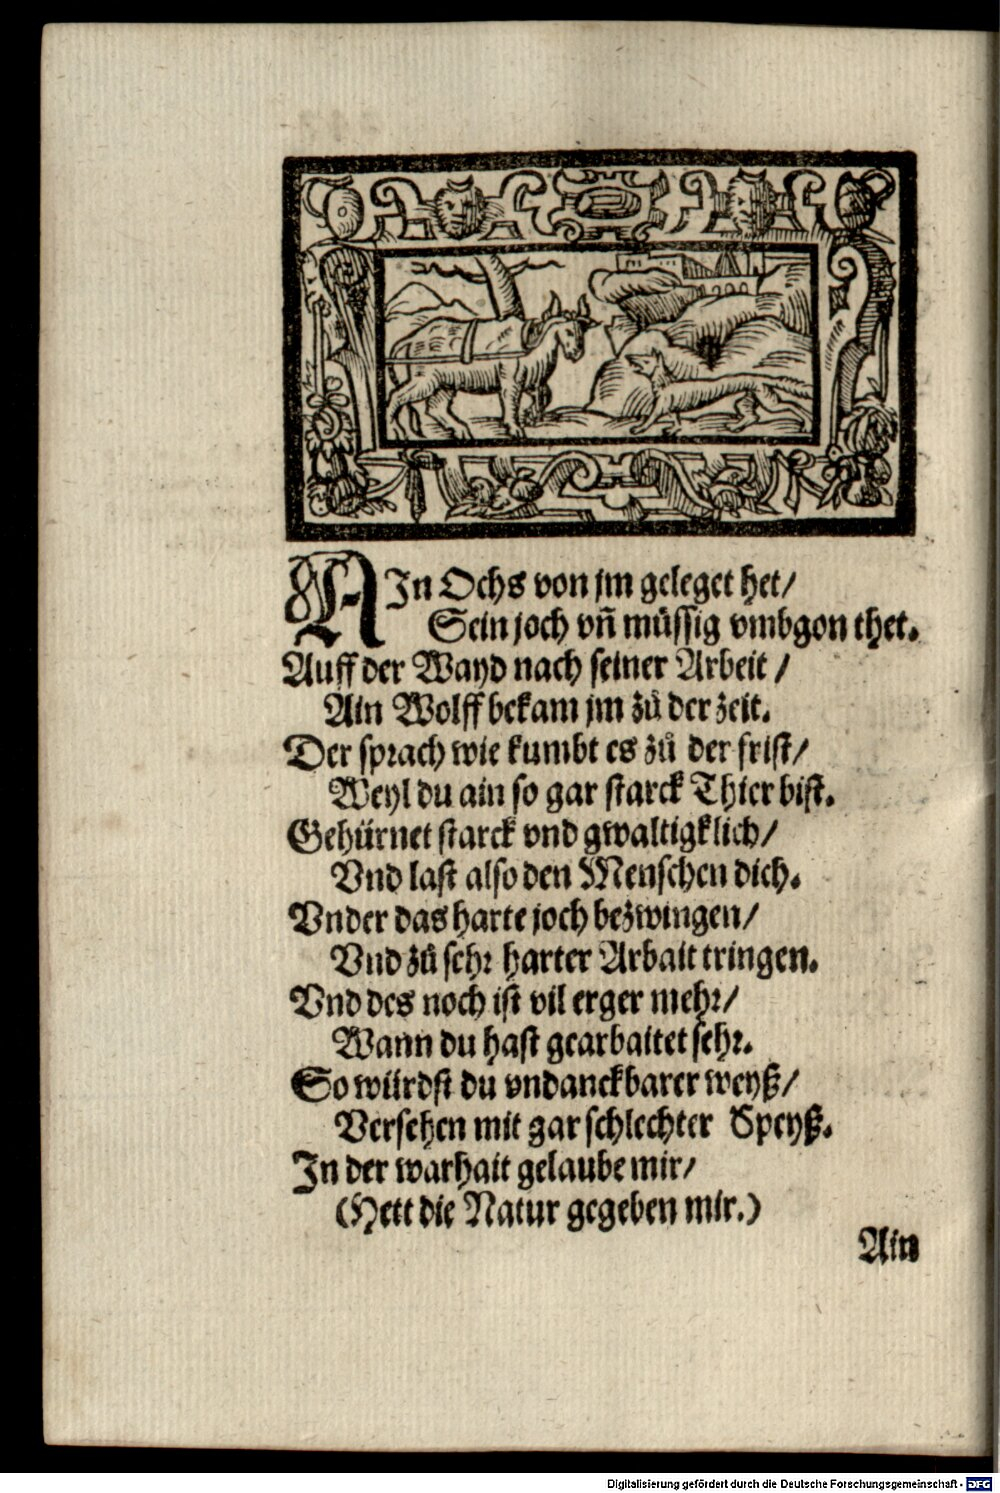 AIn Ochs von jm geleget het/
Sein joch vñ müssig vmbgon thet.
Auff der Wayd nach seiner Arbeit /
Ain Wolff bekam jm zů der zeit.
Der sprach wie kumbt es zů der frist/
Weyl du ain so gar starck Thier bist.
Gehürnet starck vnd gwaltigklich/
Vnd last also den Menschen dich.
Vnder das harte joch bezwingen/
Vnd zů sehr harter Arbait tringen.
Vnd des noch ist vil erger mehr/
Wann du hast gearbaitet sehr.
So würdst du vndanckbarer weyß/
Versehen mit gar schlechter Speyß.
In der warhait gelaube mir/
(Hett die Natur gegeben mir.)
Ain
Digitalisierung gefördert durch die Deutsche Forschungsgemeinschaft - DFG